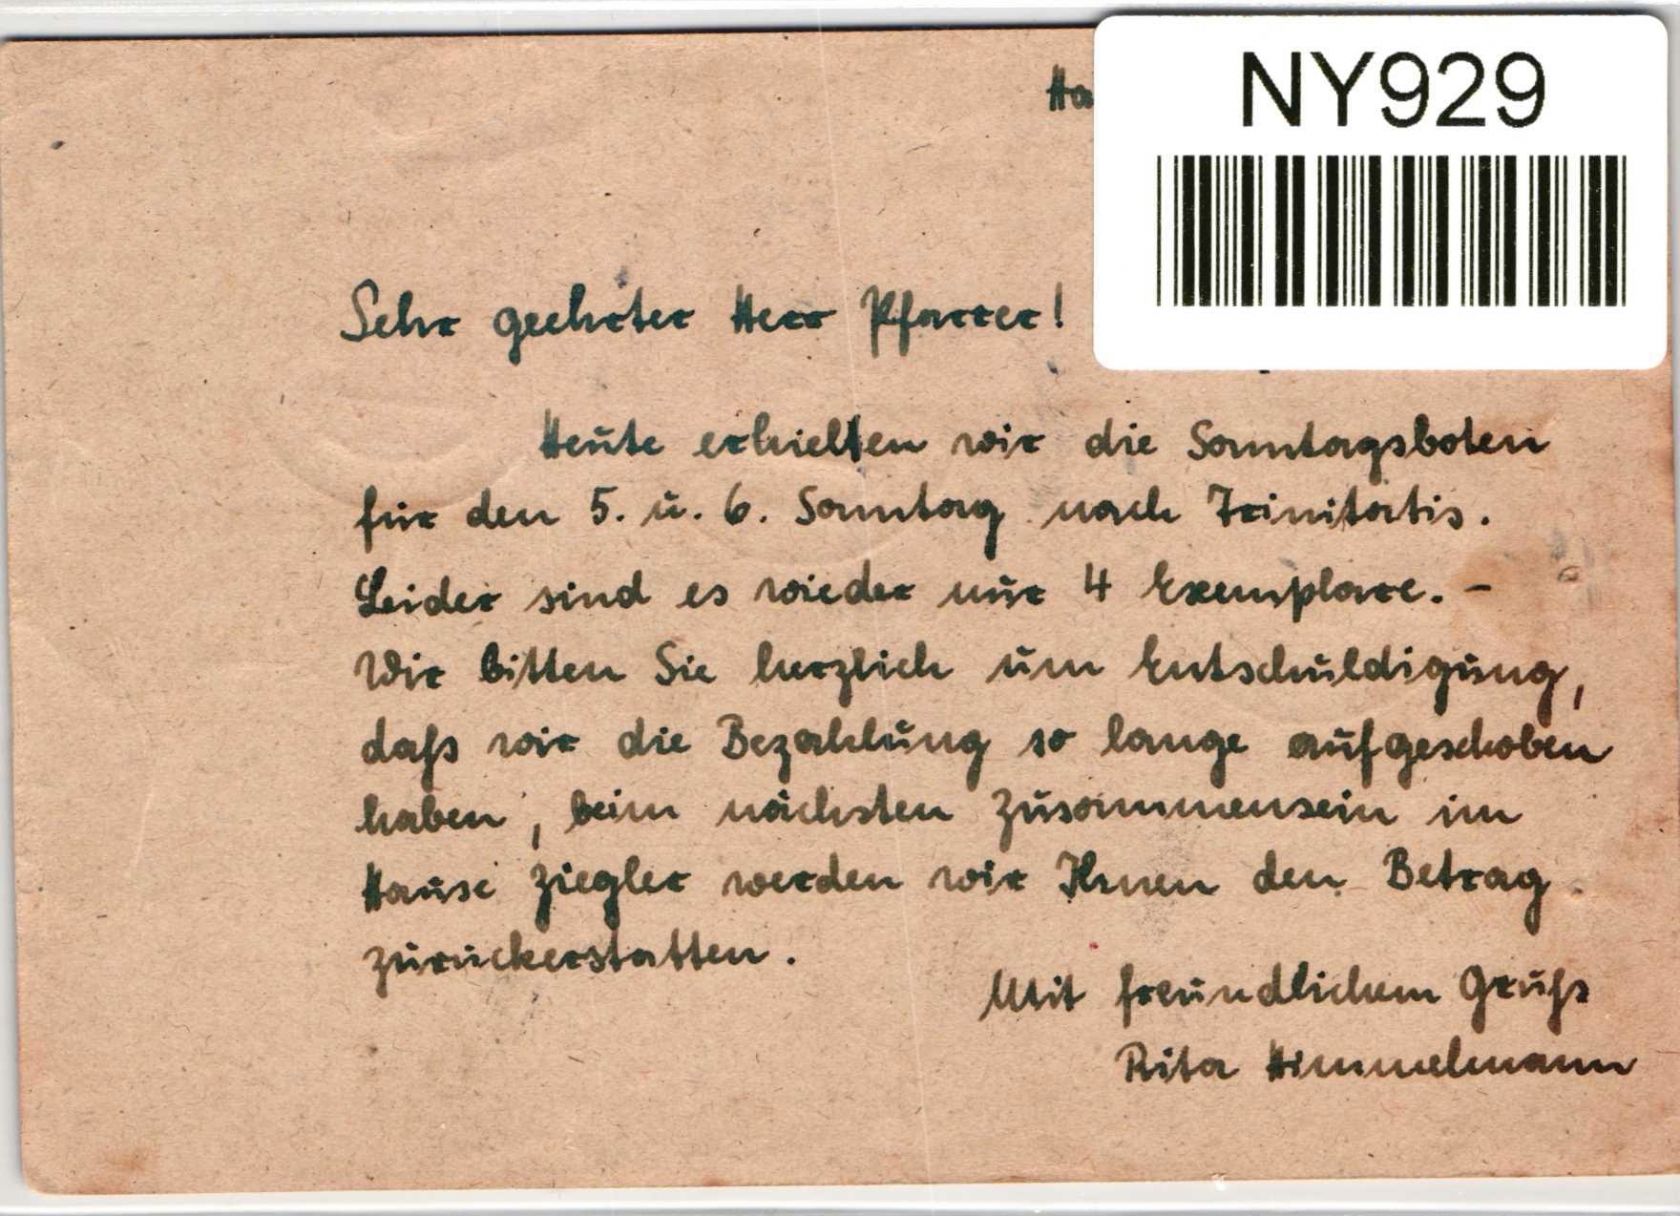 Ha
NY929
Sehr geehrter Herr Pfarrer!
Heute erhielten wir die Sonntagsboten
für den 5. u. 6. Sonntag nach Trinitatis.
Leider sind es wieder nur 4 Exemplare. –
Wir bitten Sie herzlich um Entschuldigung,
daß wir die Bezahlung so lange aufgeschoben
haben, beim nächsten Zusammensein im
Hause Ziegler werden wir Ihnen den Betrag
zurückerstatten.
Mit freundlichem Gruß
Rita Himmelmann